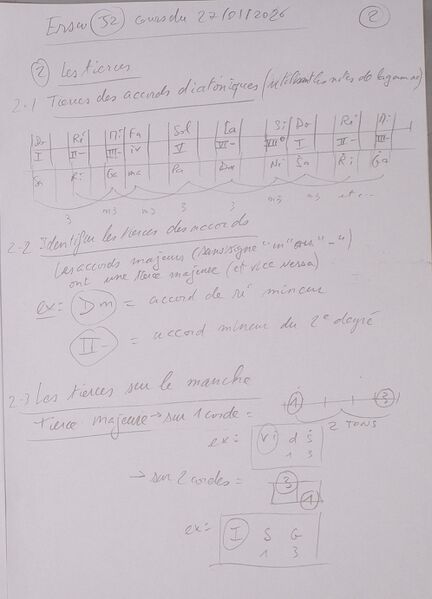 52 cours du 27/01/2026 2
2 Les tierces
2.1 Tierces des accords diatoniques (utilisant les notes de la gamme)
Do Ré Mi Fa Sol La Si Do Ré Mi
I II- III- IV V VI- VII° I II- III-
Sa Ri Ga ma Pa Dha Ni Sa Ri Ga
3 m3 m3 3 3 m3 m3 etc...
2-2 Identifier les tierces des accords
Les accords majeurs (sans signe "m" ou "-")
ont une tierce majeure (et vice versa)
ex: Dm = accord de ré mineur
II- = accord mineur du 2e degré
2-3 Les tierces sur le manche
tierce majeure → sur 1 corde = 1 3
2 TONS
ex: VI d S
1 3
→ sur 2 cordes = 3
1
ex: I S G
1 3